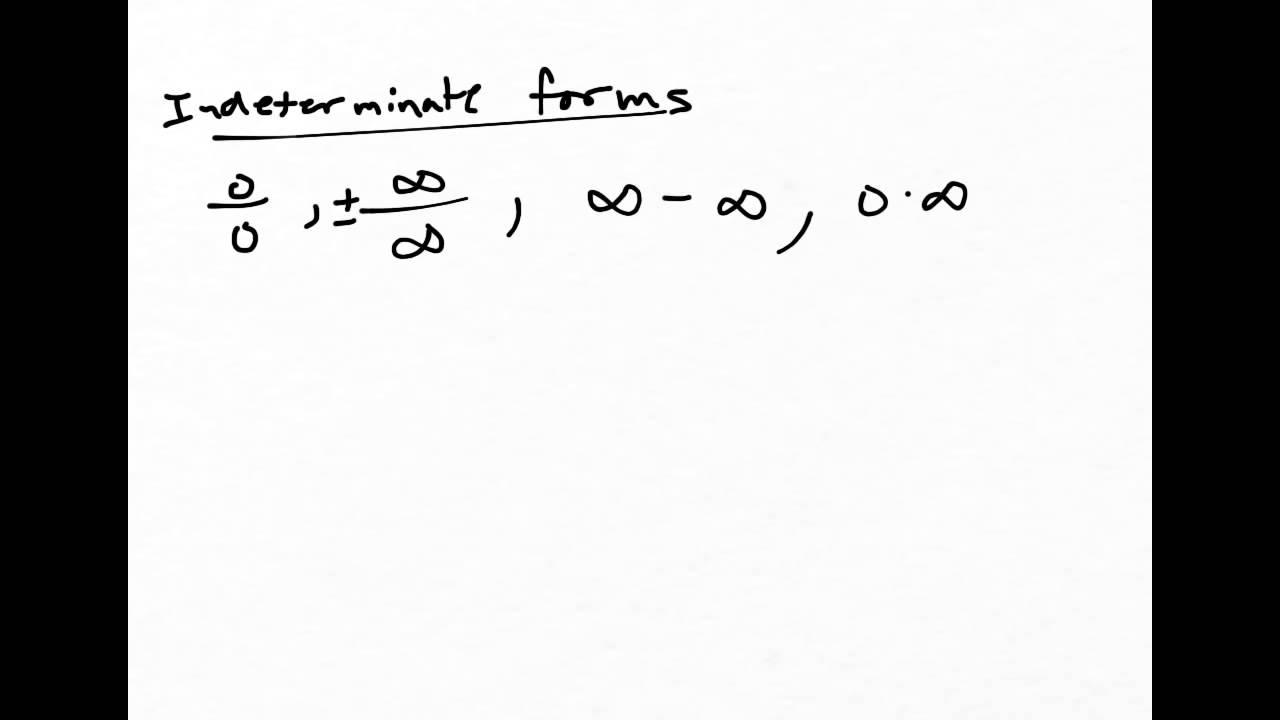 Indeterminate forms
0/0 , ± ∞/∞ , ∞ - ∞ , 0 · ∞